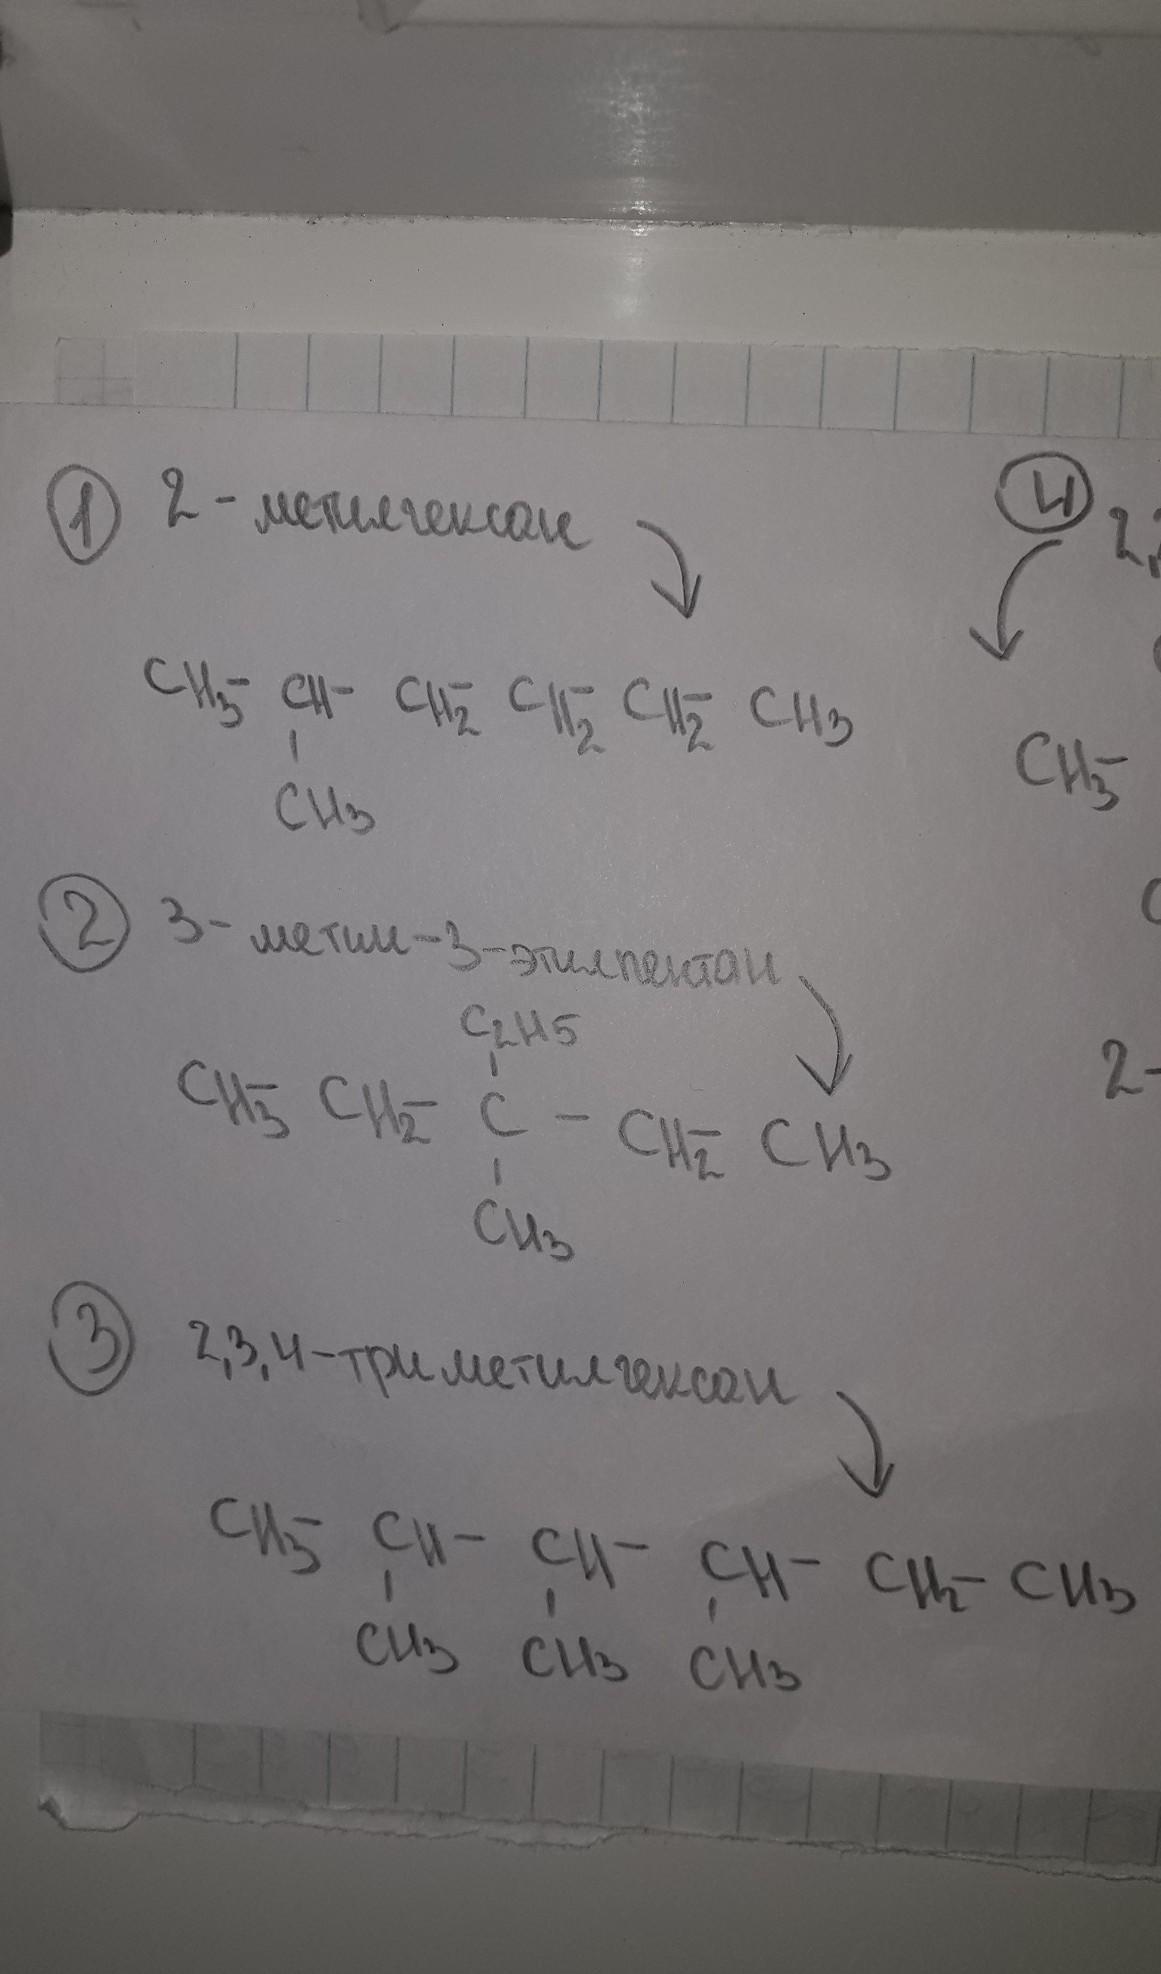 ① 2-метилгексан
CH3- CH- CH2- CH2- CH2- CH3
CH3
② 3-метил-3-этилпентан
C2H5
CH3- CH2- C - CH2- CH3
CH3
③ 2,3,4-триметилгексан
CH3- CH- CH- CH- CH2- CH3
CH3 CH3 CH3
④ 2,
CH3-
2-